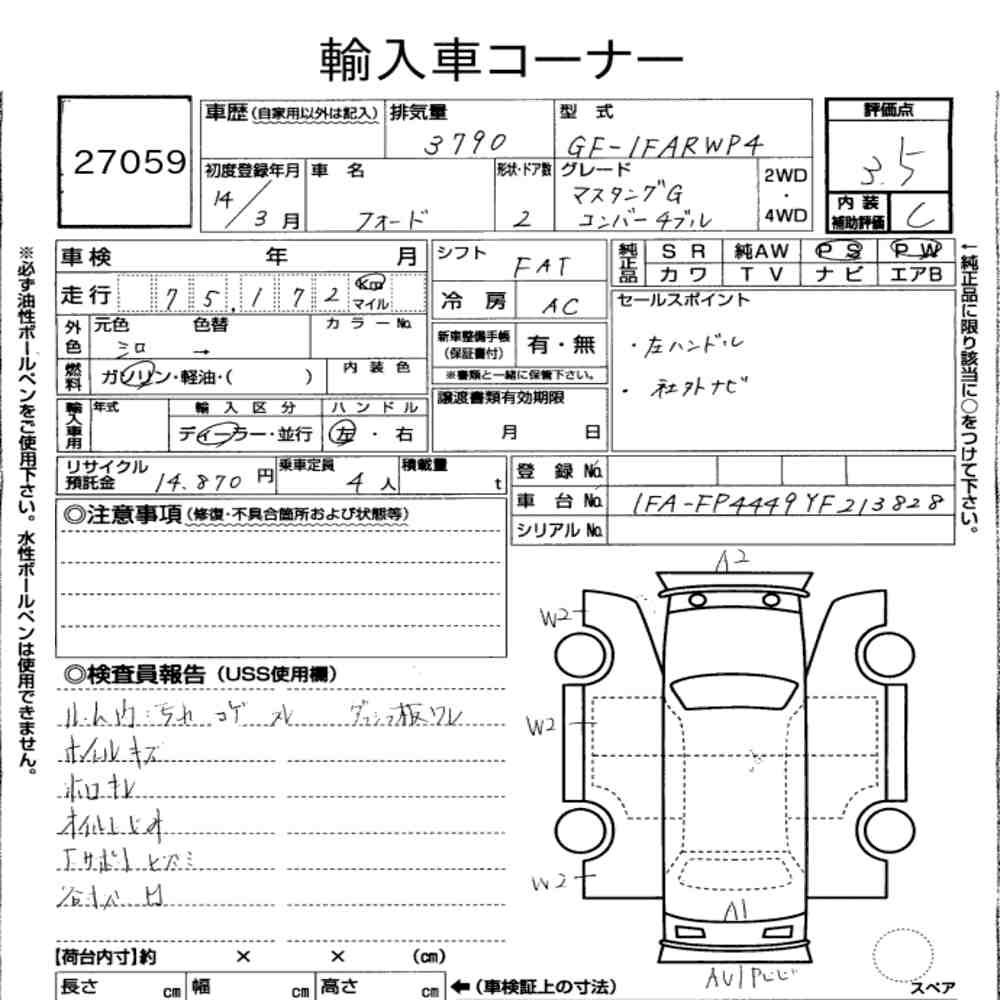 輸入車コーナー
27059
車歴(自家用以外は記入)
排気量
3790
型 式
GF-1FARWP4
評価点
3.5
初度登録年月
14/3月
車 名
フォード
形状・ドア数
2
グレード
マスタングG
コンバーチブル
2WD
・
4WD
内 装
補助評価
C
※必ず油性ボールペンをご使用下さい。水性ボールペンは使用できません。
車検 年 月
シフト
FAT
純正品
SR 純AW PS PW
カワ TV ナビ エアB
←純正品に限り該当に○をつけて下さい。
走行 75,172 Km マイル
冷 房
AC
セールスポイント
・左ハンドル
・社外ナビ
外色
元色 色替
シロ →
カラーNo.
新車整備手帳
(保証書付)
有・無
※書類と一緒に保管下さい。
燃料
ガソリン・軽油・( )
内装色
譲渡書類有効期限
月 日
輸入車用
年式
輸入区分
ディーラー・並行
ハンドル
左・右
リサイクル
預託金
14.870円
乗車定員
4人
積載量
t
登録No.
車台No. 1FA-FP4449YF213828
シリアルNo.
◎注意事項(修復・不具合箇所および状態等)
◎検査員報告(USS使用欄)
ルーム内汚れ コゲ スレ
ホイルキズ
ホロキレ
オイルにじみ
A2
W2
W2
W2
A1
【荷台内寸】約 × × (cm)
長さ cm 幅 cm 高さ cm ←(車検証上の寸法)
スペア